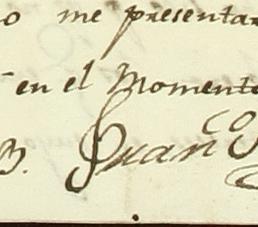 o me presentar
en el Momento
B. Juan